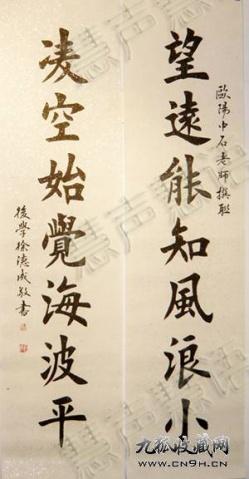 歐陽中石老師撰聯
望遠能知風浪小
凌空始覺海波平
後學徐德成敬書
九狐收藏网
www.CN9H.CN